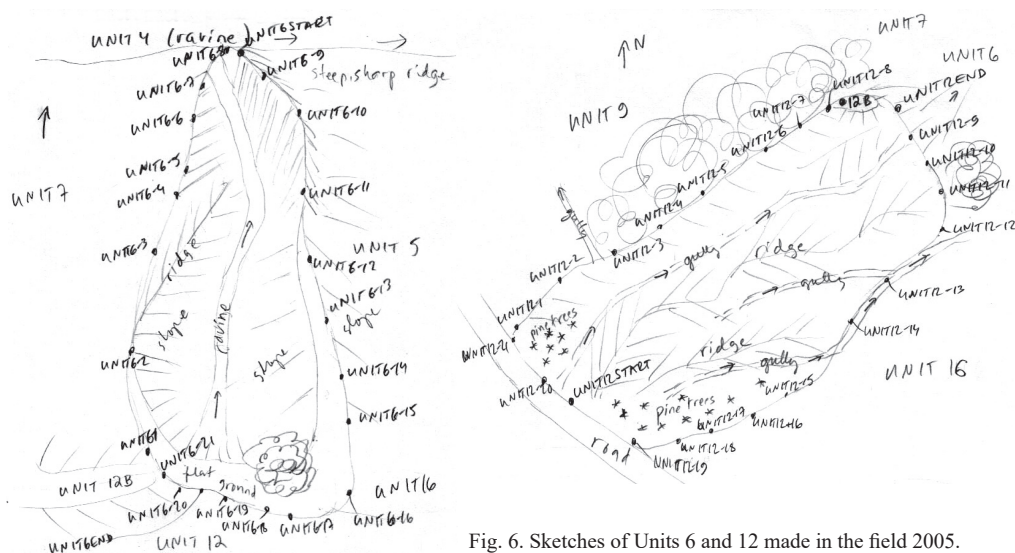 UNIT 4 (ravine)
UNIT6START
UNIT6-8
UNIT6-9
steep, sharp ridge
UNIT6-7
UNIT6-10
UNIT6-6
UNIT6-5
UNIT6-4
UNIT7
UNIT6-11
UNIT6-3
ridge
UNIT 5
UNIT6-12
UNIT6-13
slope
slope
ravine
UNIT6-2
slope
UNIT6-14
UNIT6-15
UNIT6-1
UNIT6-21
flat
ground
UNIT 12B
UNIT6-20
UNIT6-19
UNIT6-18
UNIT6-17
UNIT6-16
UNIT16
UNIT6END
UNIT 12
N
UNIT7
UNIT 6
UNIT 9
UNIT12-8
UNIT12-7
12B
UNIT12END
UNIT12-6
UNIT12-9
UNIT12-10
UNIT12-5
UNIT12-11
UNIT12-4
UNIT12-12
gully
UNIT12-3
UNIT12-2
gully
ridge
gully
UNIT12-13
UNIT12-1
pine trees
UNIT12-21
UNIT12-14
ridge
gully
UNIT12-20
UNIT12START
UNIT12-15
UNIT 16
pine trees
UNIT12-17
UNIT12-16
road
UNIT12-18
UNIT12-19
Fig. 6. Sketches of Units 6 and 12 made in the field 2005.